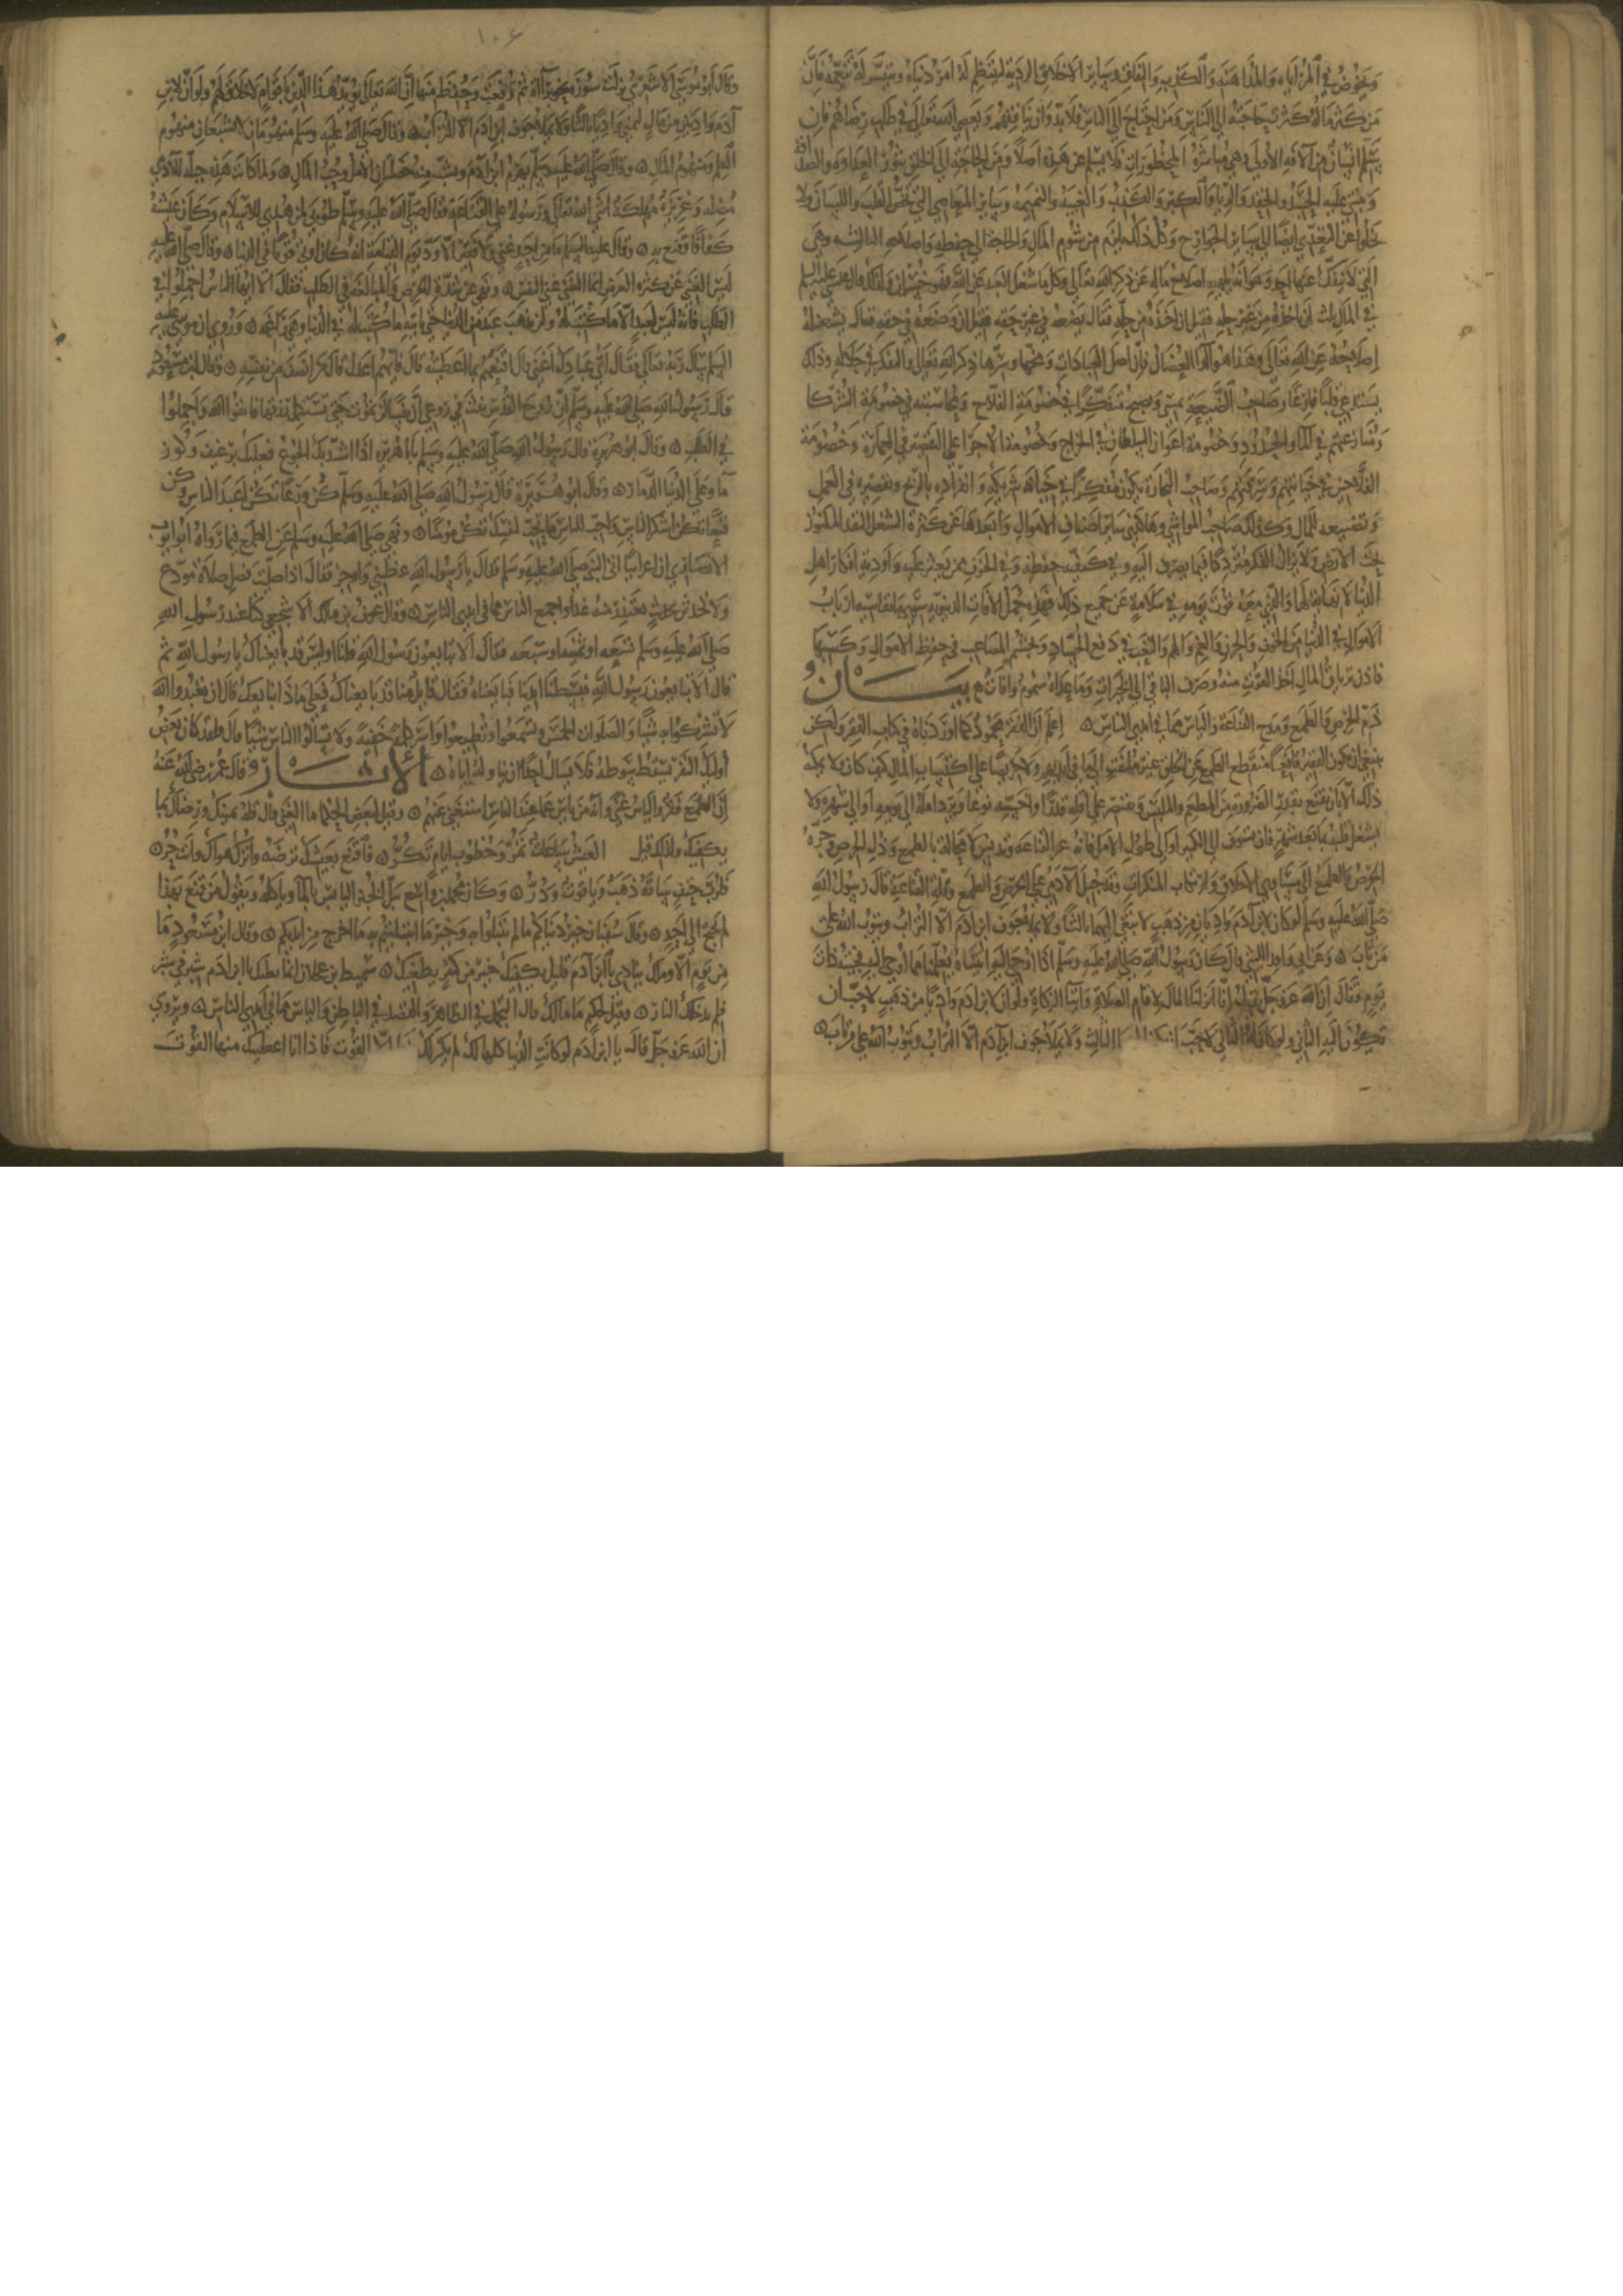 ويخوض في المراياه والمداهنه والكذب والنفاق وساير الاخلاق الرديه لينتظم له امر دنياه ويتيسر له تنعمه فان
من كثر ماله كثرت حاجته الى الناس ومن احتاج الى الناس فلا بد وان ينافقهم ويعصي الله تعالى في طلب رضاهم فان
سلم انسان من الآفه الأولى وهي مباشرة المحظورات فلا يسلم عن هذه اصلا ومن الحاجة الى الخلق تثور العداوه والصداقه
وينبني عليه الحسد والحقد والريا والكبر والكذب والغيبه والنميمه وساير المعاصي التي تخص القلب واللسان ولا
تخلوا عن التعدي ايضا الى ساير الجوارح وكل ذلك يلزم من شوم المال والحاجة الى حفظه واصلاحه الثالثه وهي
التي لا ينفك عنها احد وهو انه يلهيه اصلاح ماله عن ذكر الله تعالى وكل ما شغل العبد عن الله فهو خسران ولذلك قال عيسى عليه السلم
في المال ثلث آفات ان ياخذه من غير حله فقيل ان اخذه من حله فقال يضعه في غير حقه فقيل ان وضعه في حقه فقال يشغله
اصلاحه عن الله تعالى وهذا هو الداء العضال فان اصل العبادات ومخها وسرها ذكر الله تعالى والفكر في جلاله وذلك
يستدعي قلبا فارغا وصاحب الضيعة يمسي ويصبح متفكرا في خصومة الفلاح ومحاسبته وفي خصومة الشركا
ومنازعتهم في الماء والحدود وخصومة اعوان السلطان في الخراج وخصومة الاجرا على التقصير في العمارة وخصومة
الفلاحين في خيانتهم وسرقتهم وصاحب التجارة يكون متفكرا في خيانة شريكه وانفراده بالربح وتقصيره في العمل
وتضييعه للمال وكذلك صاحب المواشي وهكذى ساير اصناف الاموال وابعدها عن كثرة الشغل النقد المكنوز
تحت الارض ولا يزال الفكر مترددا فيما يصرف اليه وفي كيفية حفظه وفي الخوف ممن يعثر عليه واودية افكار اهل
الدنيا لا نهاية لها والذي معه قوت يومه في سلامة عن جميع ذلك فهذه جمل الآفات الدنيويه سوى ما يقاسيه ارباب
الاموال في الدنيا من الخوف والحزن والغم والهم والتعب في دفع الحساد وتجشم المصاعب في حفظ الاموال وكسبها
فاذن ترياق المال اخذ القوت منه وصرف الباقي الى الخيرات وما عداه سموم وآفات ه بيان
ذم الحرص والطمع ومدح القناعة والياس مما في ايدي الناس ه اعلم ان الفقر محمود كما اوردناه في كتاب الفقر ولكن
ينبغي ان يكون الفقير قانعا منقطع الطمع عن الخلق غير ملتفت الى ما في ايديهم ولا حريصا على اكتساب المال كيف كان ولا يمكنه
ذلك الا بان يقنع بقدر الضرورة من المطعم والملبس ويقتصر على اقله قدرا واخسه نوعا ويرد امله الى يومه او الى شهره ولا
يشغل قلبه بما بعد شهر فان تشوف الى الكثير او الى طول الامل فاته عز القناعة وتدنس لا محالة بالطمع وذل الحرص وجره
الحرص والطمع الى مساوي الاخلاق وارتكاب المنكرات وقد جبل الآدمي على الحرص والطمع وقلة القناعة قال رسول الله
صلى الله عليه وسلم لو كان لابن آدم واديان من ذهب لابتغى اليهما ثالثا ولا يملأ جوف ابن آدم الا التراب ويتوب الله على
من تاب ه وعن ابي واقد الليثي قال كان رسول الله صلى الله عليه وسلم اذا اوحي اليه اتيناه يعلمنا مما أوحي اليه فجئته ذات
يوم فقال ان الله عز وجل يقول انا انزلنا المال لاقام الصلاة وايتاء الزكاة ولو ان لابن آدم واديا من ذهب لاحب ان
يكون اليه الثاني ولو كان له الثاني لاحب ان الثالث ولا يملأ جوف ابن آدم الا التراب ويتوب الله على من تاب ه
١٠٤
وقال ابو موسى الاشعري نزلت سورة نحو براءة ثم رفعت وحفظ منها ان الله تعالى يؤيد هذا الدين باقوام لا خلاق لهم ولو ان لابن
آدم واديين من مال لتمنى واديا ثالثا ولا يملأ جوف ابن آدم الا التراب ه وقال صلى الله عليه وسلم منهومان لا يشبعان منهوم
العلم ومنهوم المال ه وقال صلى الله عليه وسلم يهرم ابن آدم ويشب منه خصلتان الامل وحب المال ه ولما كانت هذه جبلة للآدمي
مضله وغريزة مهلكة اثنى الله تعالى ورسوله على القناعة فقال صلى الله عليه وسلم طوبى لمن هدي للاسلام وكان عيشه
كفافا وقنع به ه وقال عليه السلم ما من احد غني ولا فقير الا ود يوم القيامة انه كان اوتي قوتا في الدنيا ه وقال صلى الله عليه
ليس الغنى عن كثره العرض انما الغنى غنى النفس ه ونهى عن شدة الحرص والمبالغه في الطلب فقال الا ايها الناس اجملوا في
الطلب فانه ليس لعبد الا ما كتب له ولن يذهب عبد من الدنيا حتى ياتيه ما كتب له في الدنيا وهي راغمه ه وروي ان موسى عليه
السلم سال ربه تعالى فقال اي عبادك اغنى قال اقنعهم بما اعطيته قال فايهم اعدل قال من انصف من نفسه ه وقال ابن مسعود
قال رسول الله صلى الله عليه وسلم ان روح القدس نفث في روعي ان نفسا لن تموت حتى تستكمل رزقها فاتقوا الله واجملوا
في الطلب ه وقال ابو هريرة قال رسول الله صلى الله عليه وسلم يابا هريره اذا اشتد بك الجوع فعليك برغيف وكوز
ماء وعلى الدنيا الدمار ه وقال ابو هريرة قال رسول الله صلى الله عليه وسلم كن ورعا تكن اعبد الناس وكن
قنعا تكن اشكر الناس واحب للناس ما تحب لنفسك تكن مومنا ه ونهى صلى الله عليه وسلم عن الطمع فيما رواه ابو ايوب
الانصاري ان اعرابيا اتى النبي صلى الله عليه وسلم فقال يا رسول الله عظني واوجز فقال اذا صليت فصل صلاة مودع
ولا تحدثن بحديث تعتذر منه غدا واجمع الياس مما في ايدي الناس ه وقال عوف بن مالك الاشجعي كنا عند رسول الله
صلى الله عليه وسلم تسعه او ثمنيه او سبعه فقال الا تبايعون رسول الله قلنا اوليس قد بايعناك يا رسول الله ثم
قال الا تبايعون رسول الله فبسطنا ايدينا فبايعناه فقال قايل منا قد بايعناك فعلى ماذا نبايعك قال ان تعبدوا الله
لا تشركوا به شيا والصلوات الخمس وتسمعوا وتطيعوا واسر كلمة خفية ولا تسالوا الناس شيا قال فلقد كان بعض
أوليك النفر يسقط سوطه فلا يسال احدا ان يناوله اياه ه الآثار وقال عمر رضي الله عنه
ان الطمع فقر والياس غنى وانه من ياس عما عند الناس استغنى عنهم ه وقيل لبعض الحكما ما الغنى قال قلة تمنيك ورضاك بما
يكفيك ولذلك قيل العيش ساعات تمر وخطوب ايام تكر ه فاقنع بعيشك ترضه واترك هواك وانت حر ه
فلرب حتف ساقه ذهب وياقوت ودر ه وكان محمد بن واسع يبل الخبز اليابس بالماء وياكله ويقول من قنع بهذا
لم يحتج الى احد ه وقال سفيان خير دنياكم ما لم تبتلوا به وخير ما ابتليتم به ما خرج من ايديكم ه وقال ابن مسعود ما
من يوم الا وملك ينادي يا ابن آدم قليل يكفيك خير من كثير يطغيك ه سميط بن عجلان انما بطنك يا ابن ادم شبر في شبر
فلم يدخلك النار ه وقيل لحكيم ما مالك قال التجمل في الظاهر والقصد في الباطن والياس مما في ايدي الناس ه ويروى
ان الله عز وجل قال يا ابن آدم لو كانت الدنيا كلها لك لم يكن لك الا القوت فاذا انا اعطيتك منها القوت